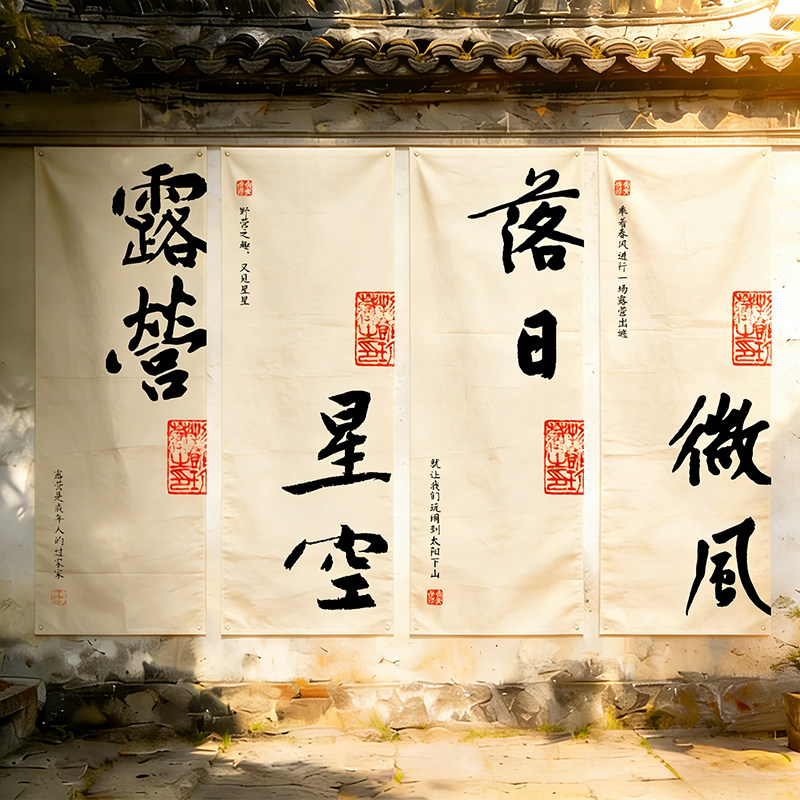 露營
露营是成年人的过家家
野营之趣，又见星星
星空
落日
就让我们玩闹到太阳下山
乘着春风进行一场露营出逃
微風